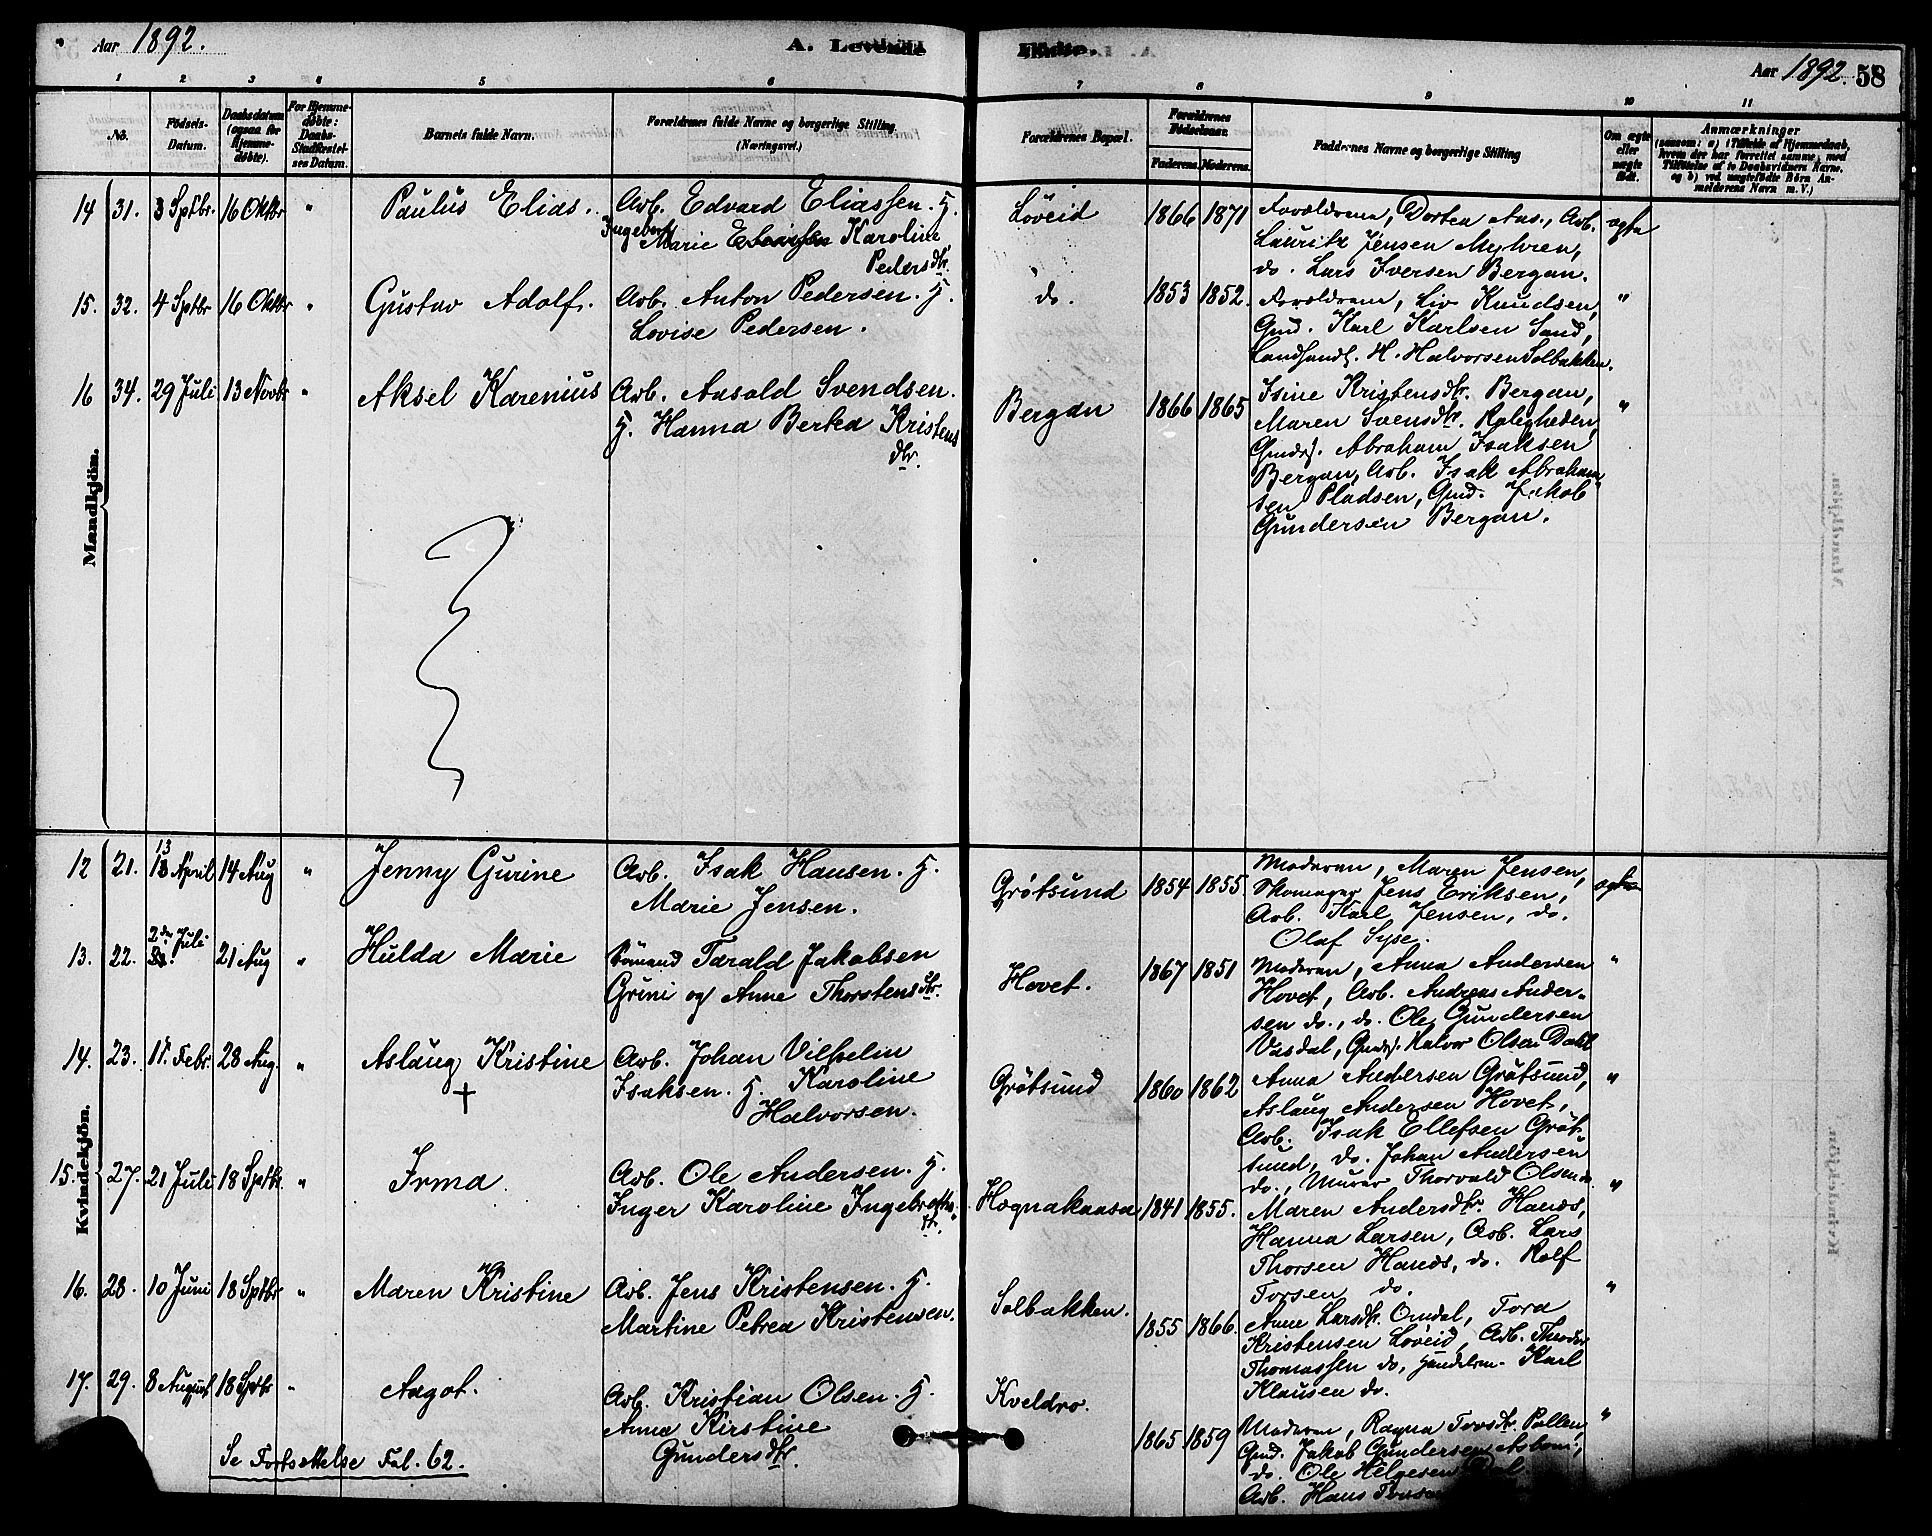 Aar 1892.
A. Levende
Fødte.
Aar 1892. 58
1 2 3 4 5 6 7 8 9 10 11
No.
Fødsels-
Datum.
Daabsdatum
(ogsaa for
Hjemme-
døbte).
For Hjemme-
døbte:
Daabs-
Stadfæstel-
ses Datum.
Barnets fulde Navn.
Forældrenes fulde Navne og borgerlige Stilling
(Næringsvei.)
Forældrenes Bopæl.
Forældrenes
Fødselsaar.
Faderens. Moderens.
Faddrenes Navne og borgerlige Stilling
Om ægte
eller
uægte
født.
Anmærkninger
(saasom: a) i Tilfælde af Hjemmedaab,
hvem der har forrettet samme, med
Tilføielse af to Daabsvidners Navne,
og b) ved uægtefødte Børn An-
melderens Navn m. V.)
Mandkjön.
14 31. 3 Sptbr. 16 Oktbr " Paulus Elias.
Arb. Edvard Eliassen. H.
Ingeborg
Marie Eliassen Karoline
Pedersdtr.
Løveid 1866 1871
Forældrene, Dortea Aas., Arb.
Lauritz Jensen Myhren,
do. Lars Iversen Bergan.
ægte
15. 32. 4 Sptbr 16 Oktbr " Gustav Adolf.
Arb. Anton Pedersen. H.
Lovise Pedersen.
do. 1853 1852.
Forældrene, Liv Knudsen,
Gmd. Karl Karlsen Sand,
Landhandl. H. Halvorsen Solbakken.
"
16 34. 29 Juli 13 Novbr " Aksel Karenius
Arb. Aasold Svendsen.
H. Hanna Bertea Kristens
dtr.
Bergan 1866 1865
Isine Kristensdtr. Bergan,
Maren Svensdtr. Roligheden,
Gmdrj. Abraham Isaksen
Bergan, Arb. Isak Abraham
sen Pladsen, Gmd. Jakob
Gundersen Bergan.
"
Kvindekjön.
12 21. 13 April 14 Aug " Jenny Gurine
Arb. Isak Hansen. H.
Marie Jensen.
Grøtsund 1854 1855.
Moderen, Maren Jensen,
Skomager Jens Eriksen,
Arb. Karl Jensen, do.
Olaf Syse.
ægte
13. 22. 2den Juli 21 Aug " Hulda Marie
Sømand Tarald Jakobsen
Grini og Anne Thorstensdtr.
Hovet. 1867 1851
Moderen, Anna Andersen
Hovet, Arb. Andreas Ander-
sen do., do. Ole Gundersen
Vasdal, Gmdrj. Halvor Olsen Dahl
"
14. 23. 17. Febr. 28 Aug. " Aslaug Kristine
†
Arb. Johan Vilhelm
Isaksen. H. Karoline
Halvorsen.
Grøtsund 1860 1862
Anna Andersen Grøtsund,
Aslaug Andersen Hovet,
Arb. Isak Ellefsen Grøt
sund, do. Johan Andersen
do., Murer Thorvald Olsen do.
"
15. 27. 21 Juli 18 Sptbr. " Irma
Arb. Ole Andersen. H.
Inger Karoline Ingebretsen
Høgnakaasa 1841 1855.
Maren Andersdtr. Hanes,
Hanna Larsen, Arb. Lars
Thorsen Hanes, do. Rolf
Torsen do.
"
16. 28. 10 Juni 18 Sptbr " Maren Kristine
Arb. Jens Kristensen. H.
Martine Petrea Kristensen.
Solbakken. 1855 1866.
Anne Larsdtr. Omdal, Tora
Kristensen Løveid, Arb. Theodor
Thomassen do, Karl
Klausen do.
"
17. 29. 8 August 18 Sptbr " Aagot.
Arb. Kristian Olsen. H.
Anna Kirstine
Gundersdtr.
Kveldro. 1865 1859
Moderen, Ragna Torsdtr. Pollen,
Gmd. Jakob Gundersen
do. Ole Helgesen
Arb. Hans
"
Se Fortsættelse Fol. 62.